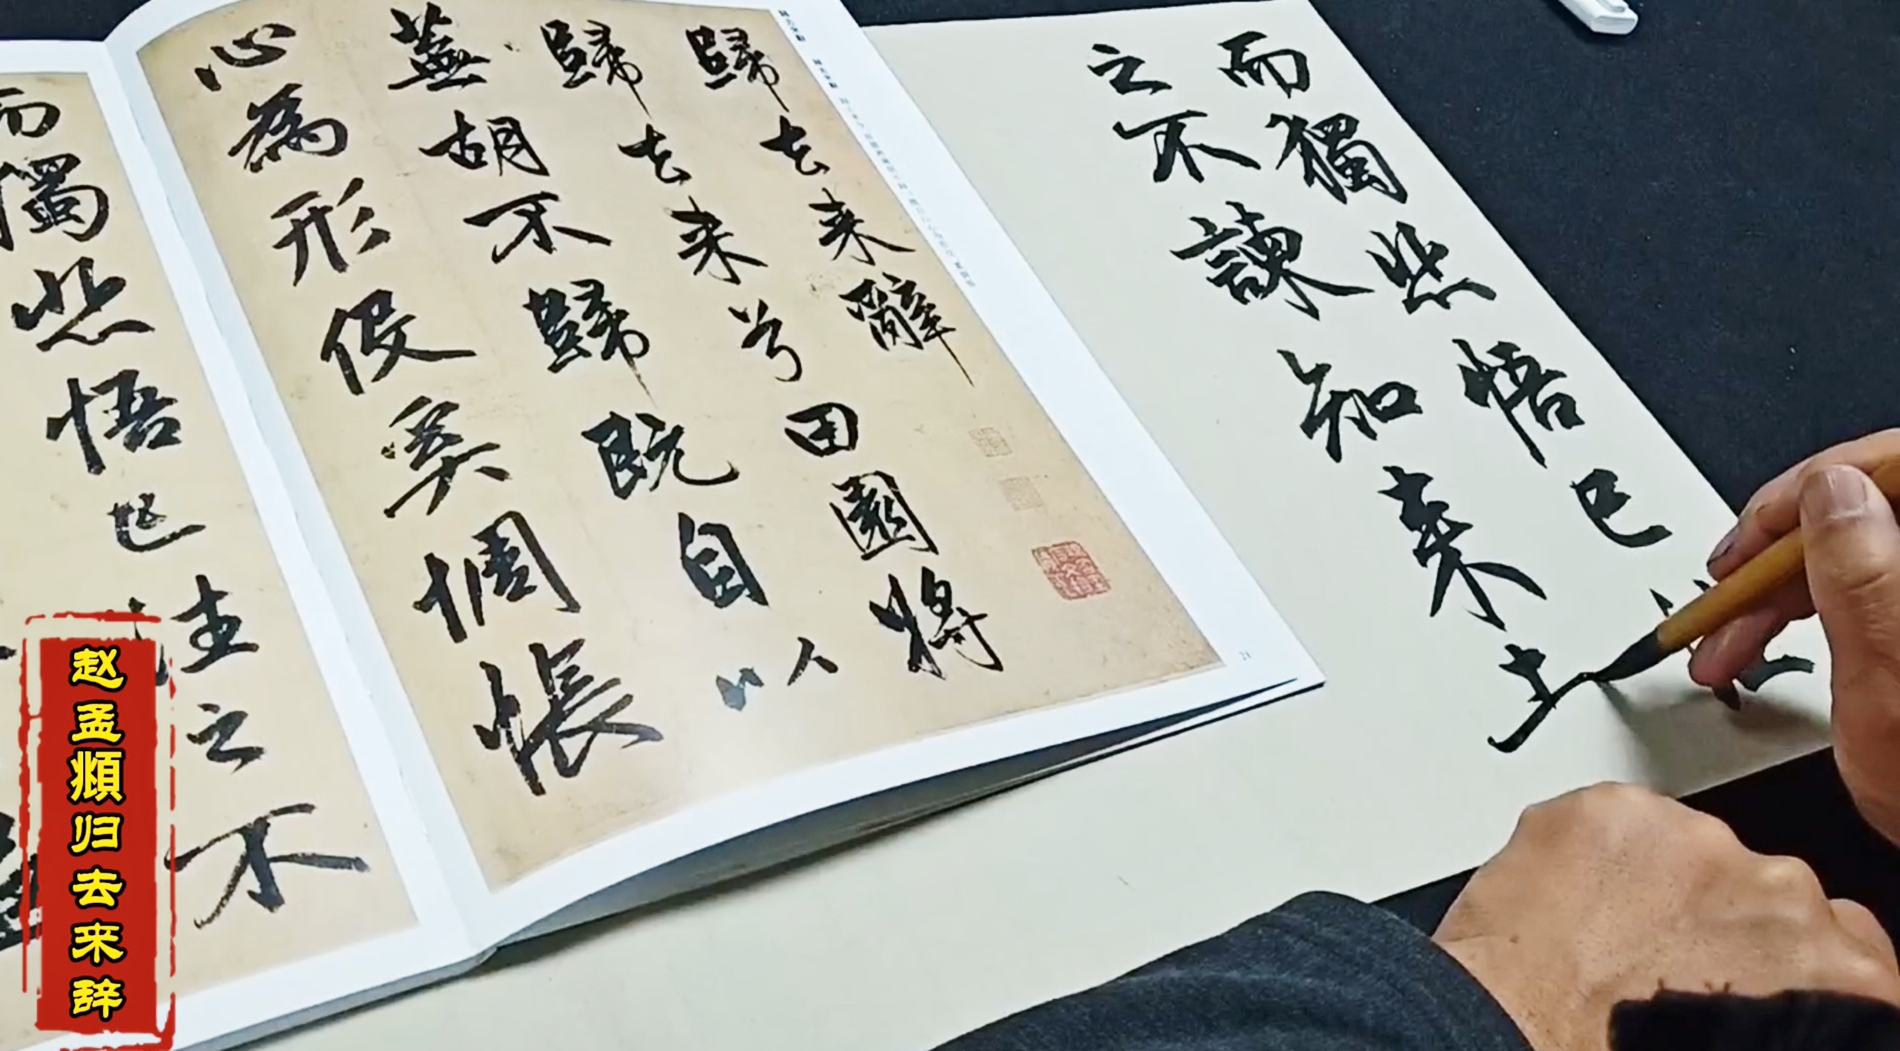 而獨悲悟已
之不諫知来
歸去来辭
歸去来兮田園將
蕪胡不歸既自以
心為形役奚惆悵
而獨悲悟已往之不
赵孟頫归去来辞